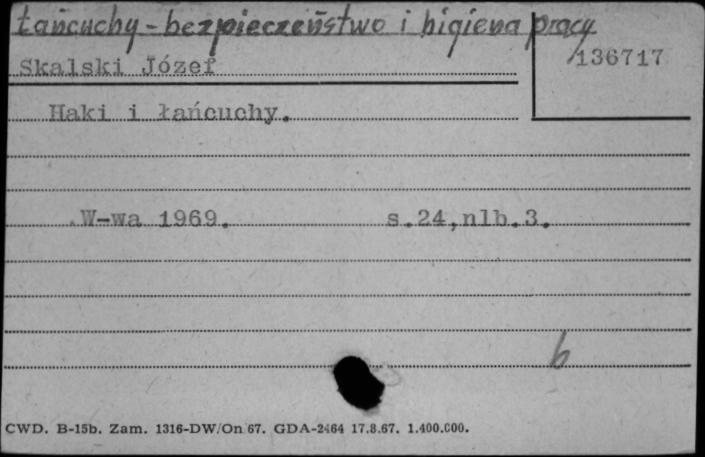 Łańcuchy - bezpieczeństwo i higiena pracy
Skalski Józef
136717
Haki i łańcuchy.
W-wa 1969. s.24,nlb.3.
b
CWD. B-15b. Zam. 1316-DW/On 67. GDA-2464 17.8.67. 1.400.000.